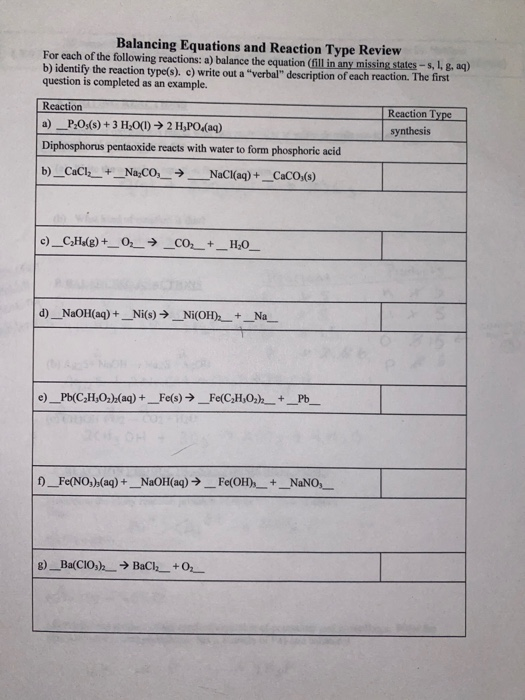 Balancing Equations and Reaction Type Review
For each of the following reactions: a) balance the equation (fill in any missing states – s, l, g, aq)
b) identify the reaction type(s). c) write out a "verbal" description of each reaction. The first
question is completed as an example.
Reaction
Reaction Type
a) __P₂O₅(s) + 3 H₂O(l) → 2 H₃PO₄(aq)
synthesis
Diphosphorus pentaoxide reacts with water to form phosphoric acid
b) __CaCl₂__ + __Na₂CO₃__ → __NaCl(aq) + __CaCO₃(s)
c) __C₃H₈(g) + __O₂__ → __CO₂__ + __H₂O__
d) __NaOH(aq) + __Ni(s) → __Ni(OH)₂__ + __Na__
e) __Pb(C₂H₃O₂)₂(aq) + __Fe(s) → __Fe(C₂H₃O₂)₂__ + __Pb__
f) __Fe(NO₃)₃(aq) + __NaOH(aq) → __Fe(OH)₃__ + __NaNO₃__
g) __Ba(ClO₃)₂__ → BaCl₂__ + O₂__